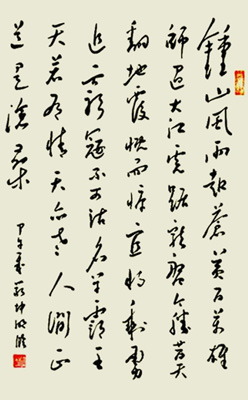 鍾山風雨起蒼黄百万雄
師過大江虎踞龍盤今勝昔天
翻地覆慨而慷宜将剩勇
追窮寇不可沽名学霸王
天若有情天亦老人间正
道是滄桑
甲午